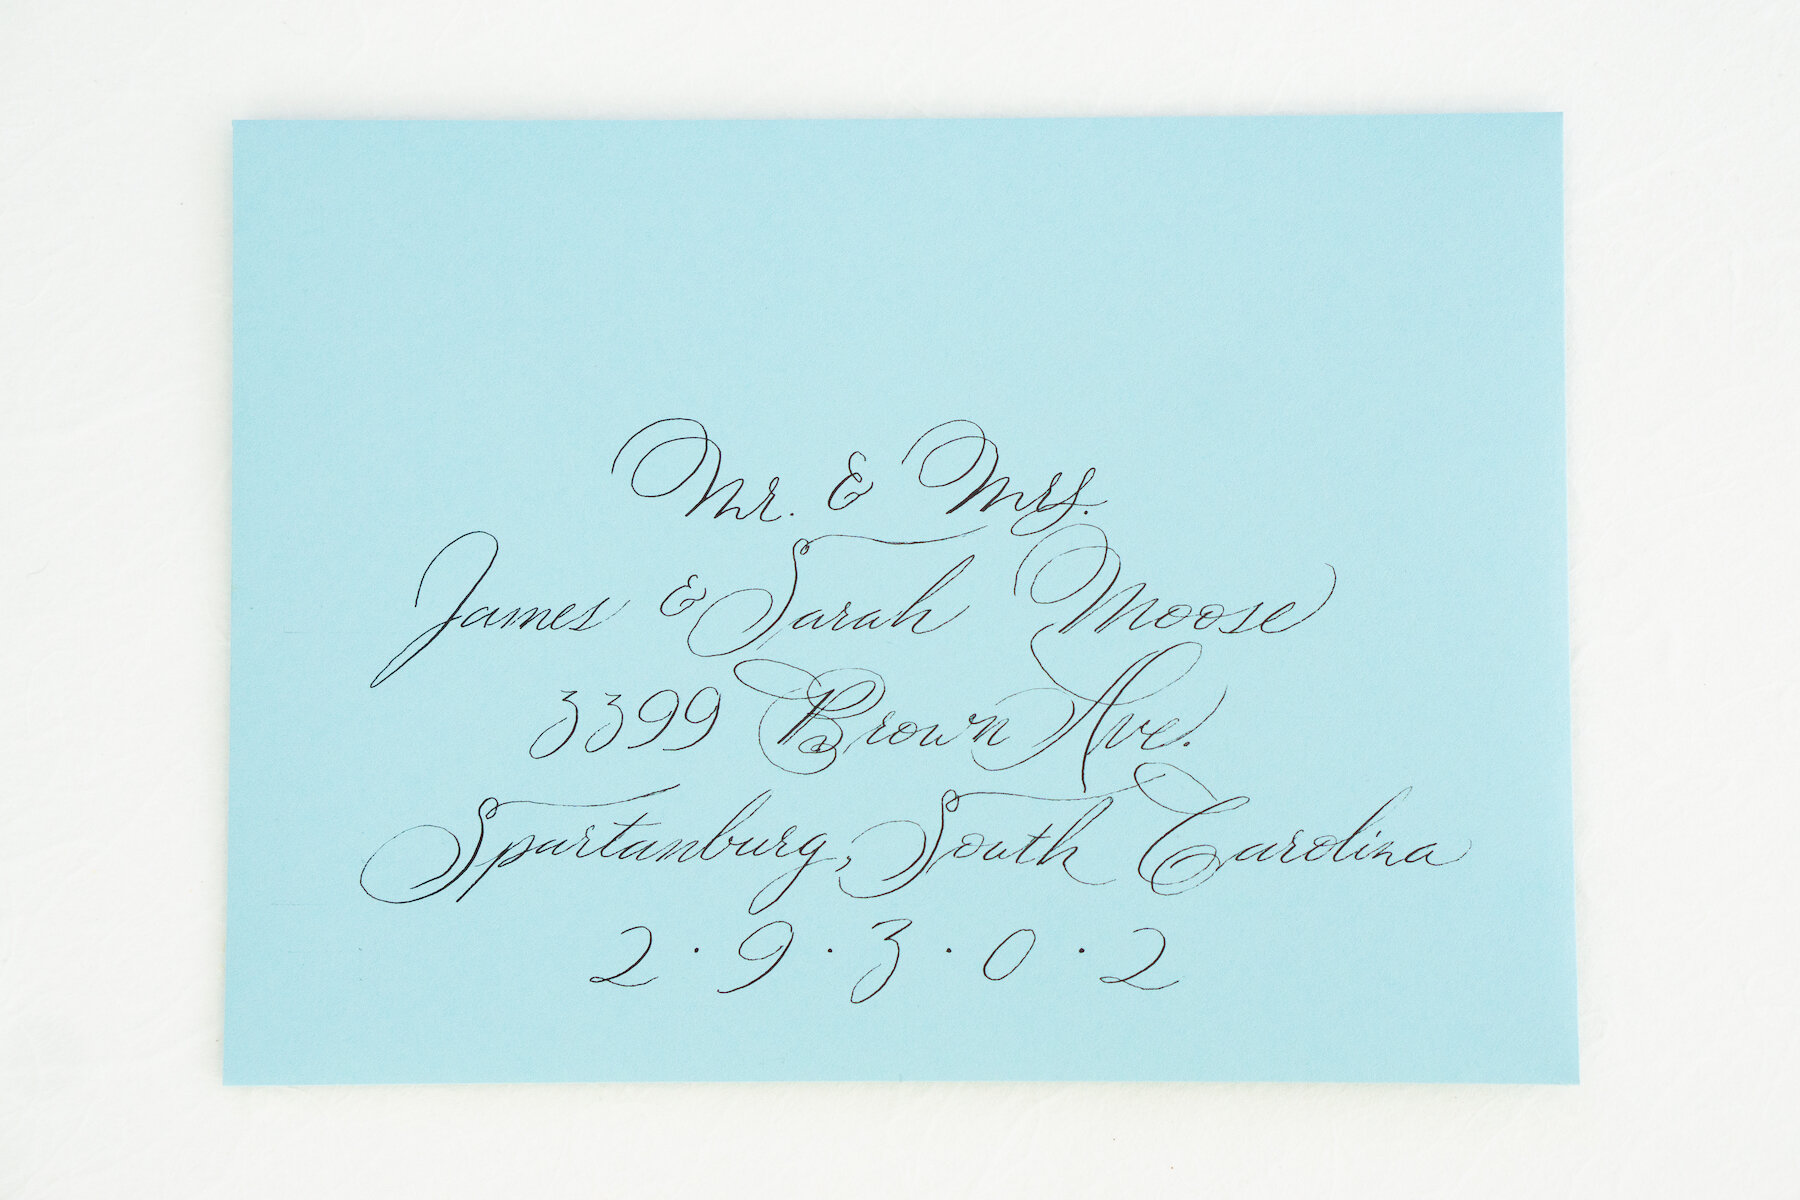 Mr. & Mrs.
James & Sarah Moose
3399 Brown Ave.
Spartanburg, South Carolina
2·9·3·0·2